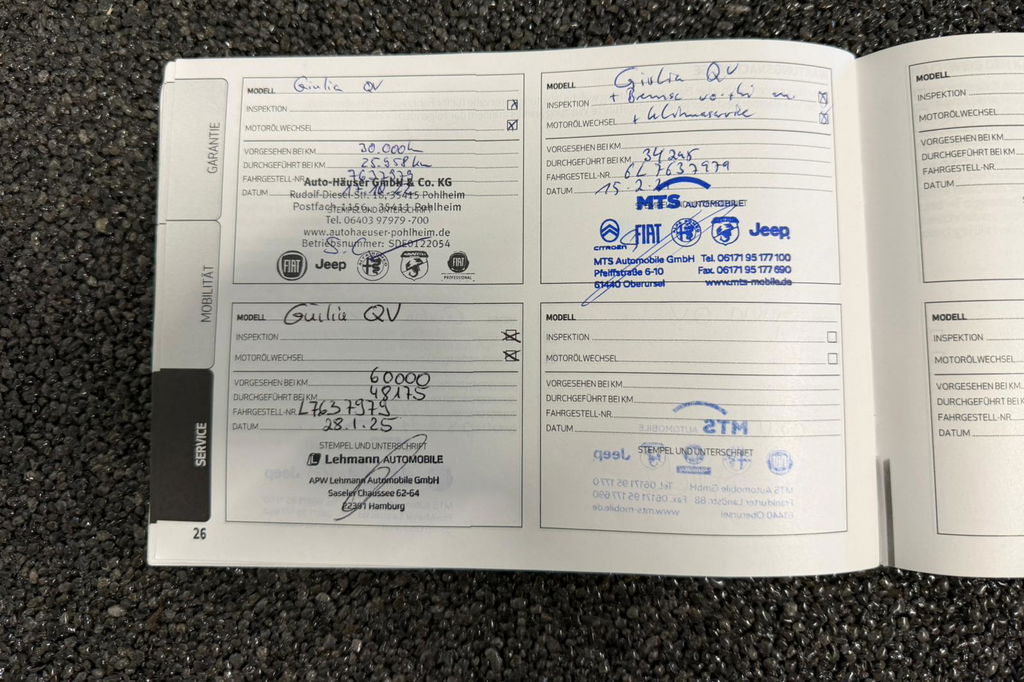 GARANTIE
MOBILITÄT
SERVICE
26
MODELL Giulia QV
INSPEKTION
MOTORÖLWECHSEL
VORGESEHEN BEI KM 30.000km
DURCHGEFÜHRT BEI KM 25.958km
FAHRGESTELL-NR. 7637979
DATUM
STEMPEL UND UNTERSCHRIFT
Auto-Häuser GmbH & Co. KG
Rudolf-Diesel-Str. 16, 35415 Pohlheim
Postfach 1156, 35411 Pohlheim
Tel. 06403 97979-700
www.autohaeuser-pohlheim.de
Betriebsnummer: SDE0122054
FIAT Jeep ABARTH FIAT PROFESSIONAL
MODELL Giulia QV
INSPEKTION
MOTORÖLWECHSEL + Klimaservice
VORGESEHEN BEI KM
DURCHGEFÜHRT BEI KM
FAHRGESTELL-NR. 6L7637979
DATUM 15.2.2
MTS AUTOMOBILE
CITROËN FIAT Jeep
MTS Automobile GmbH Tel. 06171 95 177 100
Pfeiffstraße 6-10 Fax. 06171 95 177 690
61440 Oberursel www.mts-mobile.de
MODELL Guilia QV
INSPEKTION
MOTORÖLWECHSEL
VORGESEHEN BEI KM 60000
DURCHGEFÜHRT BEI KM 48175
FAHRGESTELL-NR. L7637979
DATUM 28.1.25
STEMPEL UND UNTERSCHRIFT
Lehmann AUTOMOBILE
APW Lehmann Automobile GmbH
Saseler Chaussee 62-64
22391 Hamburg
MODELL
INSPEKTION
MOTORÖLWECHSEL
VORGESEHEN BEI KM
DURCHGEFÜHRT BEI KM
FAHRGESTELL-NR.
DATUM
STEMPEL UND UNTERSCHRIFT
MODELL
INSPEKTION
MOTORÖLWECHSEL
VORGESEHEN BEI KM
DURCHGEFÜHRT BEI
FAHRGESTELL-NR.
DATUM
MODELL
INSPEKTION
MOTORÖLWECHSEL
VORGESEHEN BEI KM
DURCHGEFÜHRT BEI
FAHRGESTELL-NR.
DATUM